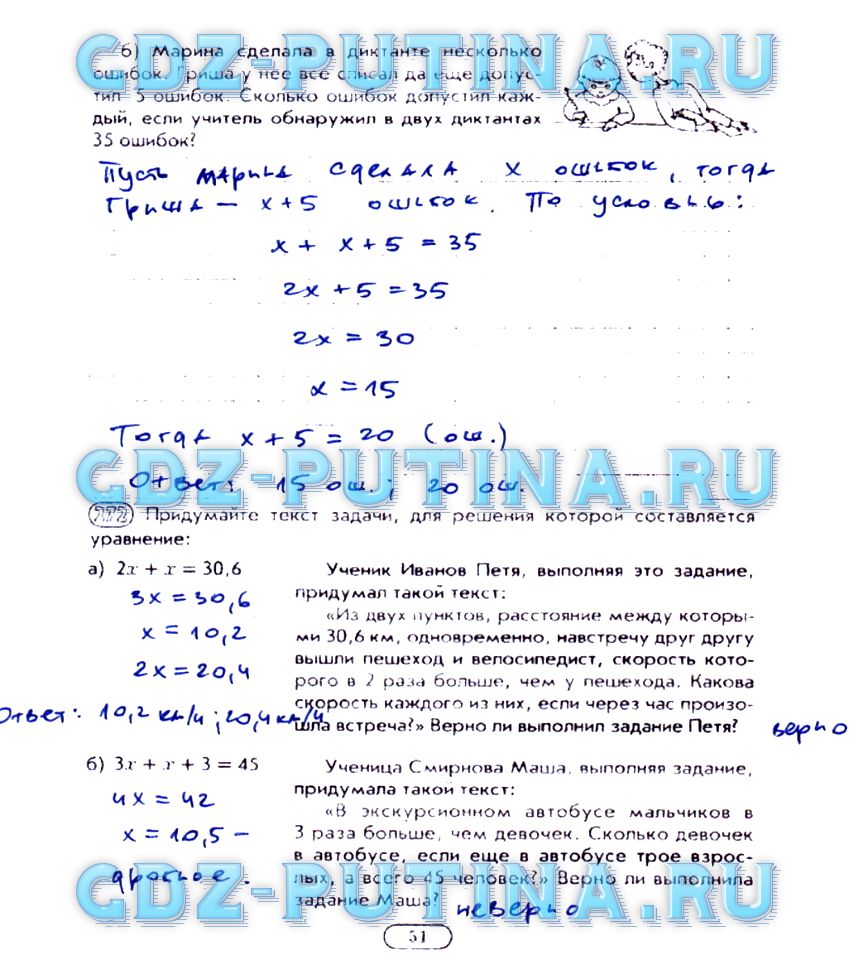 б) Марина сделала в диктанте несколько
ошибок. Гриша у нее все списал да еще допус-
тил 5 ошибок. Сколько ошибок допустил каж-
дый, если учитель обнаружил в двух диктантах
35 ошибок?
Пусть Марина сделала x ошибок, тогда
Гриша — x + 5 ошибок. По условию:
x + x + 5 = 35
2x + 5 = 35
2x = 30
x = 15
Тогда x + 5 = 20 (ош.)
Ответ: 15 ош.; 20 ош.
222 Придумайте текст задачи, для решения которой составляется
уравнение:
а) 2x + x = 30,6
3x = 30,6
x = 10,2
2x = 20,4
Ответ: 10,2 км/ч; 20,4 км/ч
Ученик Иванов Петя, выполняя это задание,
придумал такой текст:
«Из двух пунктов, расстояние между которы-
ми 30,6 км, одновременно, навстречу друг другу
вышли пешеход и велосипедист, скорость кото-
рого в 2 раза больше, чем у пешехода. Какова
скорость каждого из них, если через час произо-
шла встреча?» Верно ли выполнил задание Петя?
верно
б) 3x + x + 3 = 45
4x = 42
x = 10,5 —
дробное.
Ученица Смирнова Маша, выполняя задание,
придумала такой текст:
«В экскурсионном автобусе мальчиков в
3 раза больше, чем девочек. Сколько девочек
в автобусе, если еще в автобусе трое взрос-
лых, а всего 45 человек?» Верно ли выполнила
задание Маша?
неверно
51
GDZ-PUTINA.RU
GDZ-PUTINA.RU
GDZ-PUTINA.RU